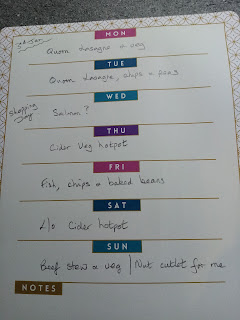 MON
3rd Jan
Quorn Lasagne & veg
TUE
Quorn Lasagne, chips & peas
WED
Shopping
day
Salmon?
THU
Cider Veg hotpot
FRI
Fish, chips & baked beans
SAT
L/o Cider hotpot
SUN
Beef stew & veg | Nut cutlet for me
NOTES